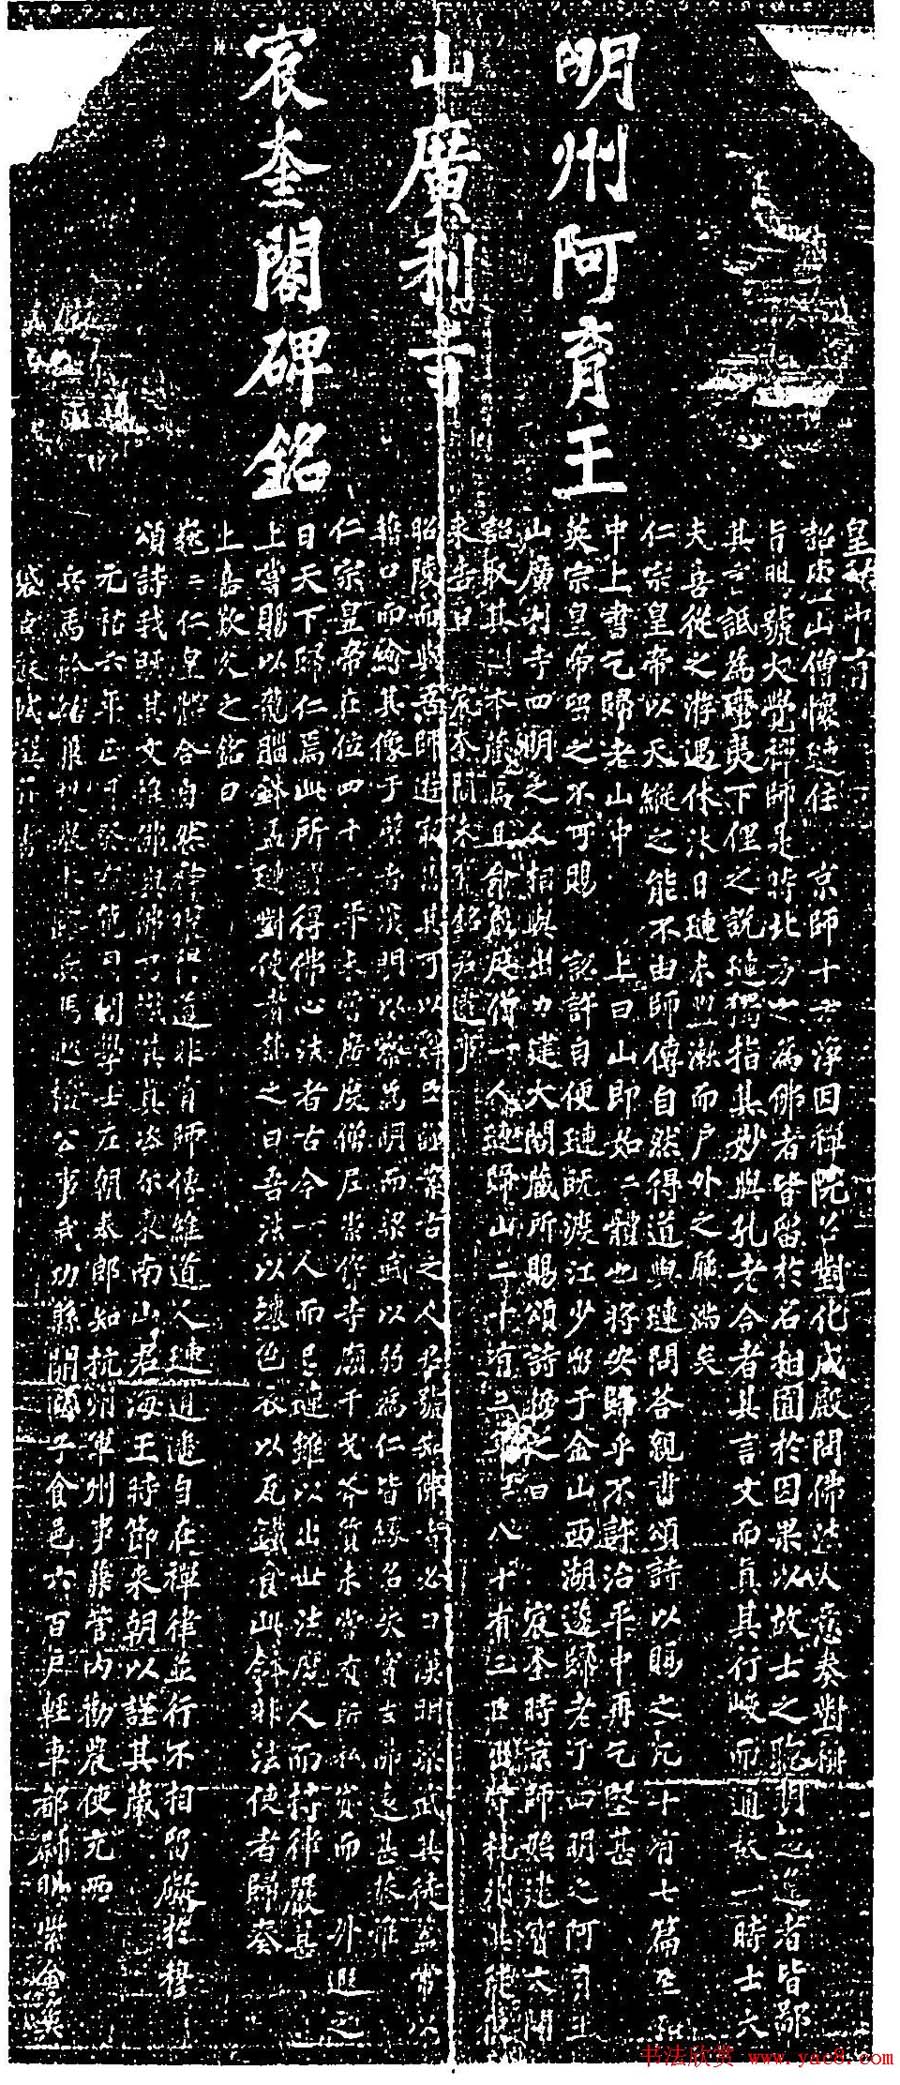 明州阿育王
山廣利寺
宸奎閣碑銘
皇祐中有
詔廬山僧懷璉住 京師十方淨因禪院召對化成殿問佛法大意奏對稱
旨賜號大覺禪師是時北方之為佛者皆留於名相囿於因果以故士之聰明超軼者皆鄙
其言詆為蠻夷下俚之說璉獨指其妙與孔老合者其言文而真其行峻而通故一時士大
夫喜從之游遇休沐日璉未盥漱而戶外之屨滿矣
仁宗皇帝以天縱之能不由師傅自然得道與璉問答親書頌詩以賜之凡十有七篇至和
中上書乞歸老山中 上曰山即如如體也將安歸乎不許治平中再乞堅甚
英宗皇帝留之不可賜 詔許自便璉既渡江少留于金山西湖遂歸老于四明之阿育王
山廣利寺四明之人相與出力建大閣藏所賜頌詩榜之曰 宸奎時京師始建寶文閣
詔取其副本藏焉且命歲度僧一人璉歸山二十有三年年八十有三臣出守杭州其徒使
來告曰 宸奎閣未有銘君逮事
昭陵而與吾師游最舊其可以辭臣謹案古之人君號知佛者必曰漢明梁武其徒蓋常以
藉口而繪其像于壁者漢明以察為明而梁武以弱為仁皆緣名失實去佛遠甚恭惟
仁宗皇帝在位四十二年未嘗廣度僧尼崇侈寺廟干戈斧質未嘗有所私貸而 升遐之
日天下歸仁焉此所謂得佛心法者古今一人而已璉雖以出世法度人而持律嚴甚
上嘗賜以龍腦鉢盂璉對使者焚之曰吾法以壞色衣以瓦鐵食此鉢非法使者歸奏
上嘉歎久之銘曰
巍巍仁皇體合自然神耀得道非有師傳維道人璉逍遙自在禪律並行不相留礙於穆
頌詩我既其文惟佛與佛乃識其真咨爾東南山君海王時節來朝以謹其藏
元祐六年正月癸亥龍圖閣學士左朝奉郎知杭州軍州事兼管內勸農使充兩
兵馬鈐轄兼 兵馬巡檢公事武功縣開國子食邑六百戶輕車都尉賜紫金魚
袋臣蘇軾撰并書
书法欣赏 www.yac8.com